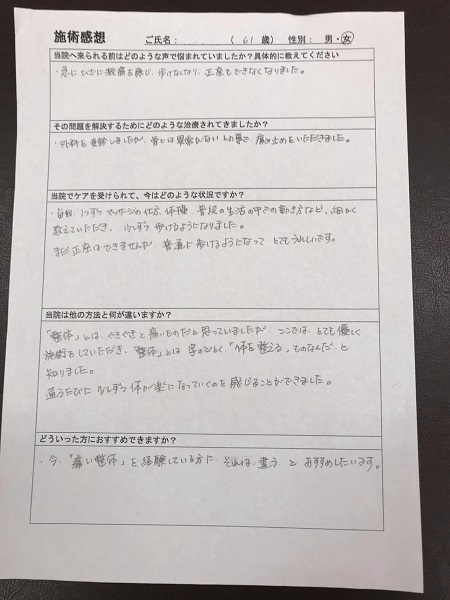 施術感想 ご氏名： （61 歳） 性別： 男・女
当院へ来られる前はどのような声で悩まれていましたか？具体的に教えてください
・急にひざに激痛を感じ、歩けなくなり、正座もできなくなりました。
その問題を解決するためにどのような治療されてきましたか？
・外科を受診しましたが、骨には異常がないとの事で、痛み止めをいただきました。
当院でケアを受けられて、今はどのような状況ですか？
・毎回、1つずつマッサージの仕方、体操、普段の生活の中での動き方など、細かく
教えていただき、少しずつ歩けるようになりました。
まだ正座はできませんが、普通に歩けるようになって とてもうれしいです。
当院は他の方法と何が違いますか？
「整体」とは、ぐきぐきと痛いものだと思っていましたが、ここでは、とても優しく
施術をしていただき、「整体」とは 字のごとく「体を整える」ものなんだ と
知りました。
通うたびに 少しずつ 体が楽になっていくのを感じることができました。
どういった方におすすめできますか？
・今、「痛い整体」を経験している方に、それは違う とおすすめしたいです。